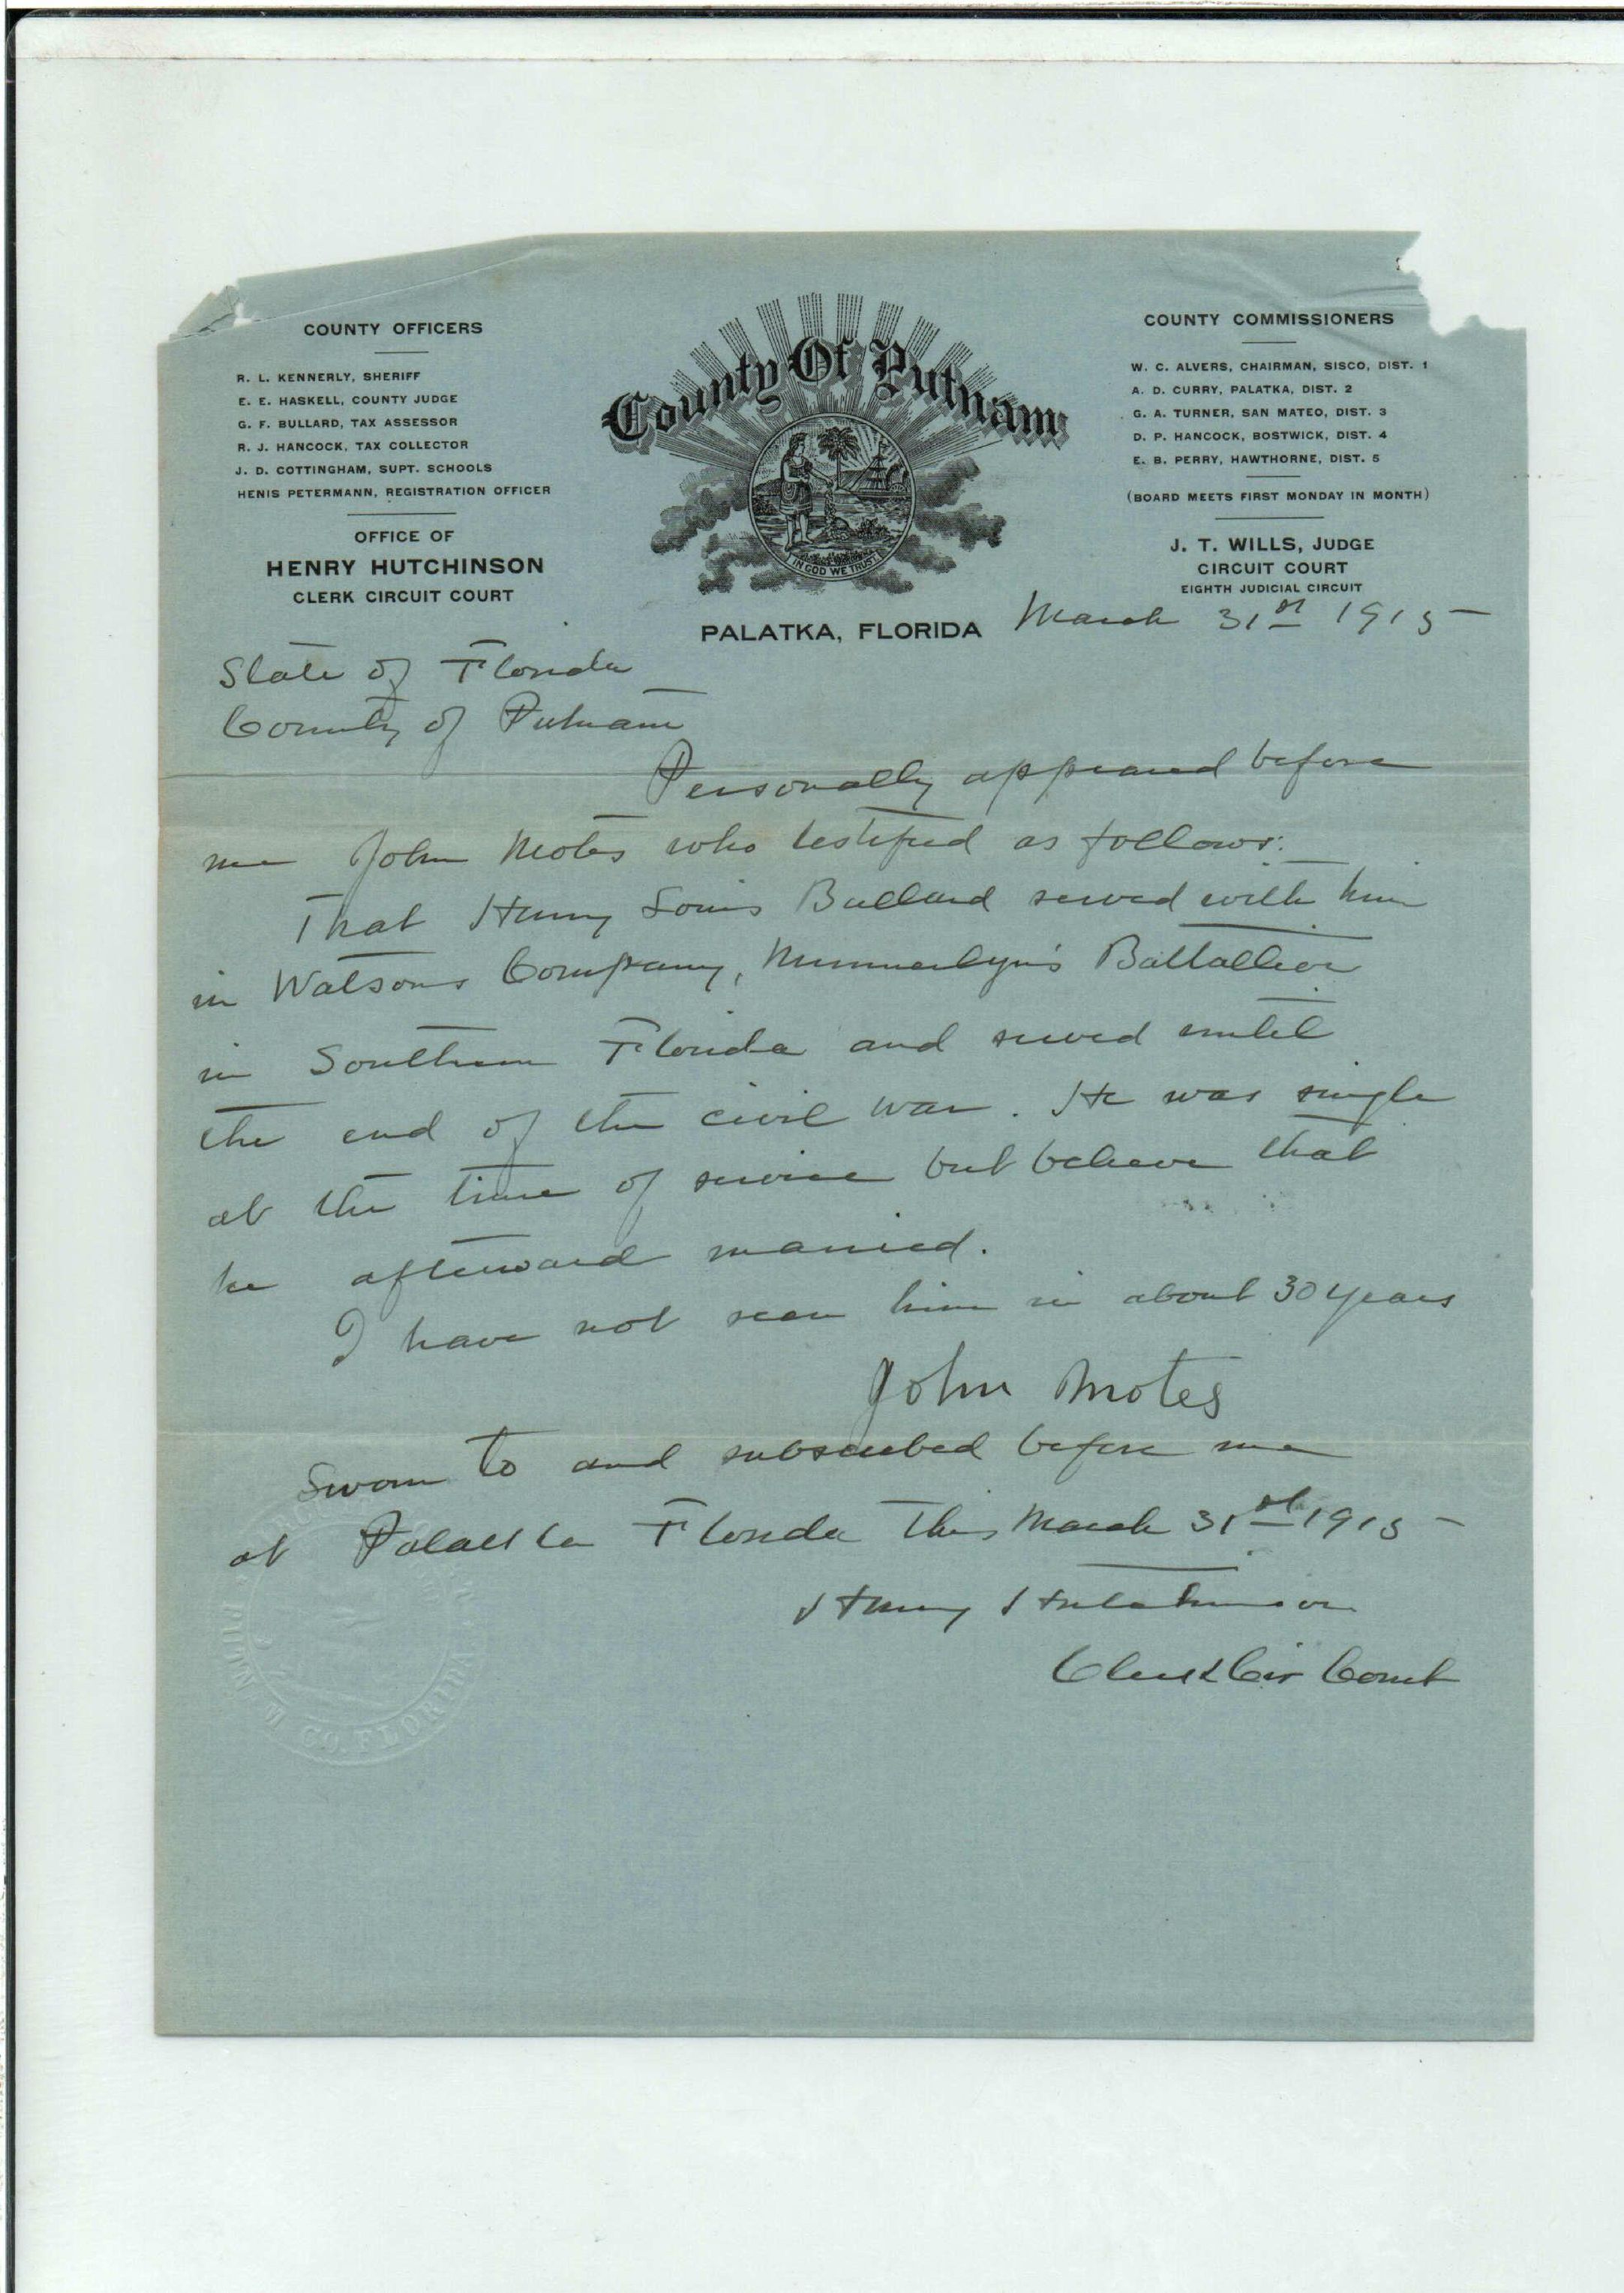 COUNTY OFFICERS
R. L. KENNERLY, SHERIFF
E. E. HASKELL, COUNTY JUDGE
G. F. BULLARD, TAX ASSESSOR
R. J. HANCOCK, TAX COLLECTOR
J. D. COTTINGHAM, SUPT. SCHOOLS
HENIS PETERMANN, REGISTRATION OFFICER
OFFICE OF
HENRY HUTCHINSON
CLERK CIRCUIT COURT
County Of Putnam
IN GOD WE TRUST
PALATKA, FLORIDA
COUNTY COMMISSIONERS
W. C. ALVERS, CHAIRMAN, SISCO, DIST. 1
A. D. CURRY, PALATKA, DIST. 2
G. A. TURNER, SAN MATEO, DIST. 3
D. P. HANCOCK, BOSTWICK, DIST. 4
E. B. PERRY, HAWTHORNE, DIST. 5
(BOARD MEETS FIRST MONDAY IN MONTH)
J. T. WILLS, JUDGE
CIRCUIT COURT
EIGHTH JUDICIAL CIRCUIT
March 31st 1915
State of Florida
County of Putnam
Personally appeared before
me John Motes who testified as follows:
That Henry Louis Bullard served with him
in Watsons Company, Munnerlyn's Battallion
in Southern Florida and served until
the end of the civil war. He was single
at the time of service but believe that
he afterward married.
I have not seen him in about 30 years
John Motes
Sworn to and subscribed before me
at Palatka Florida this March 31st 1915
Henry Hutchinson
Clerk Cir Court
CO. FLORIDA